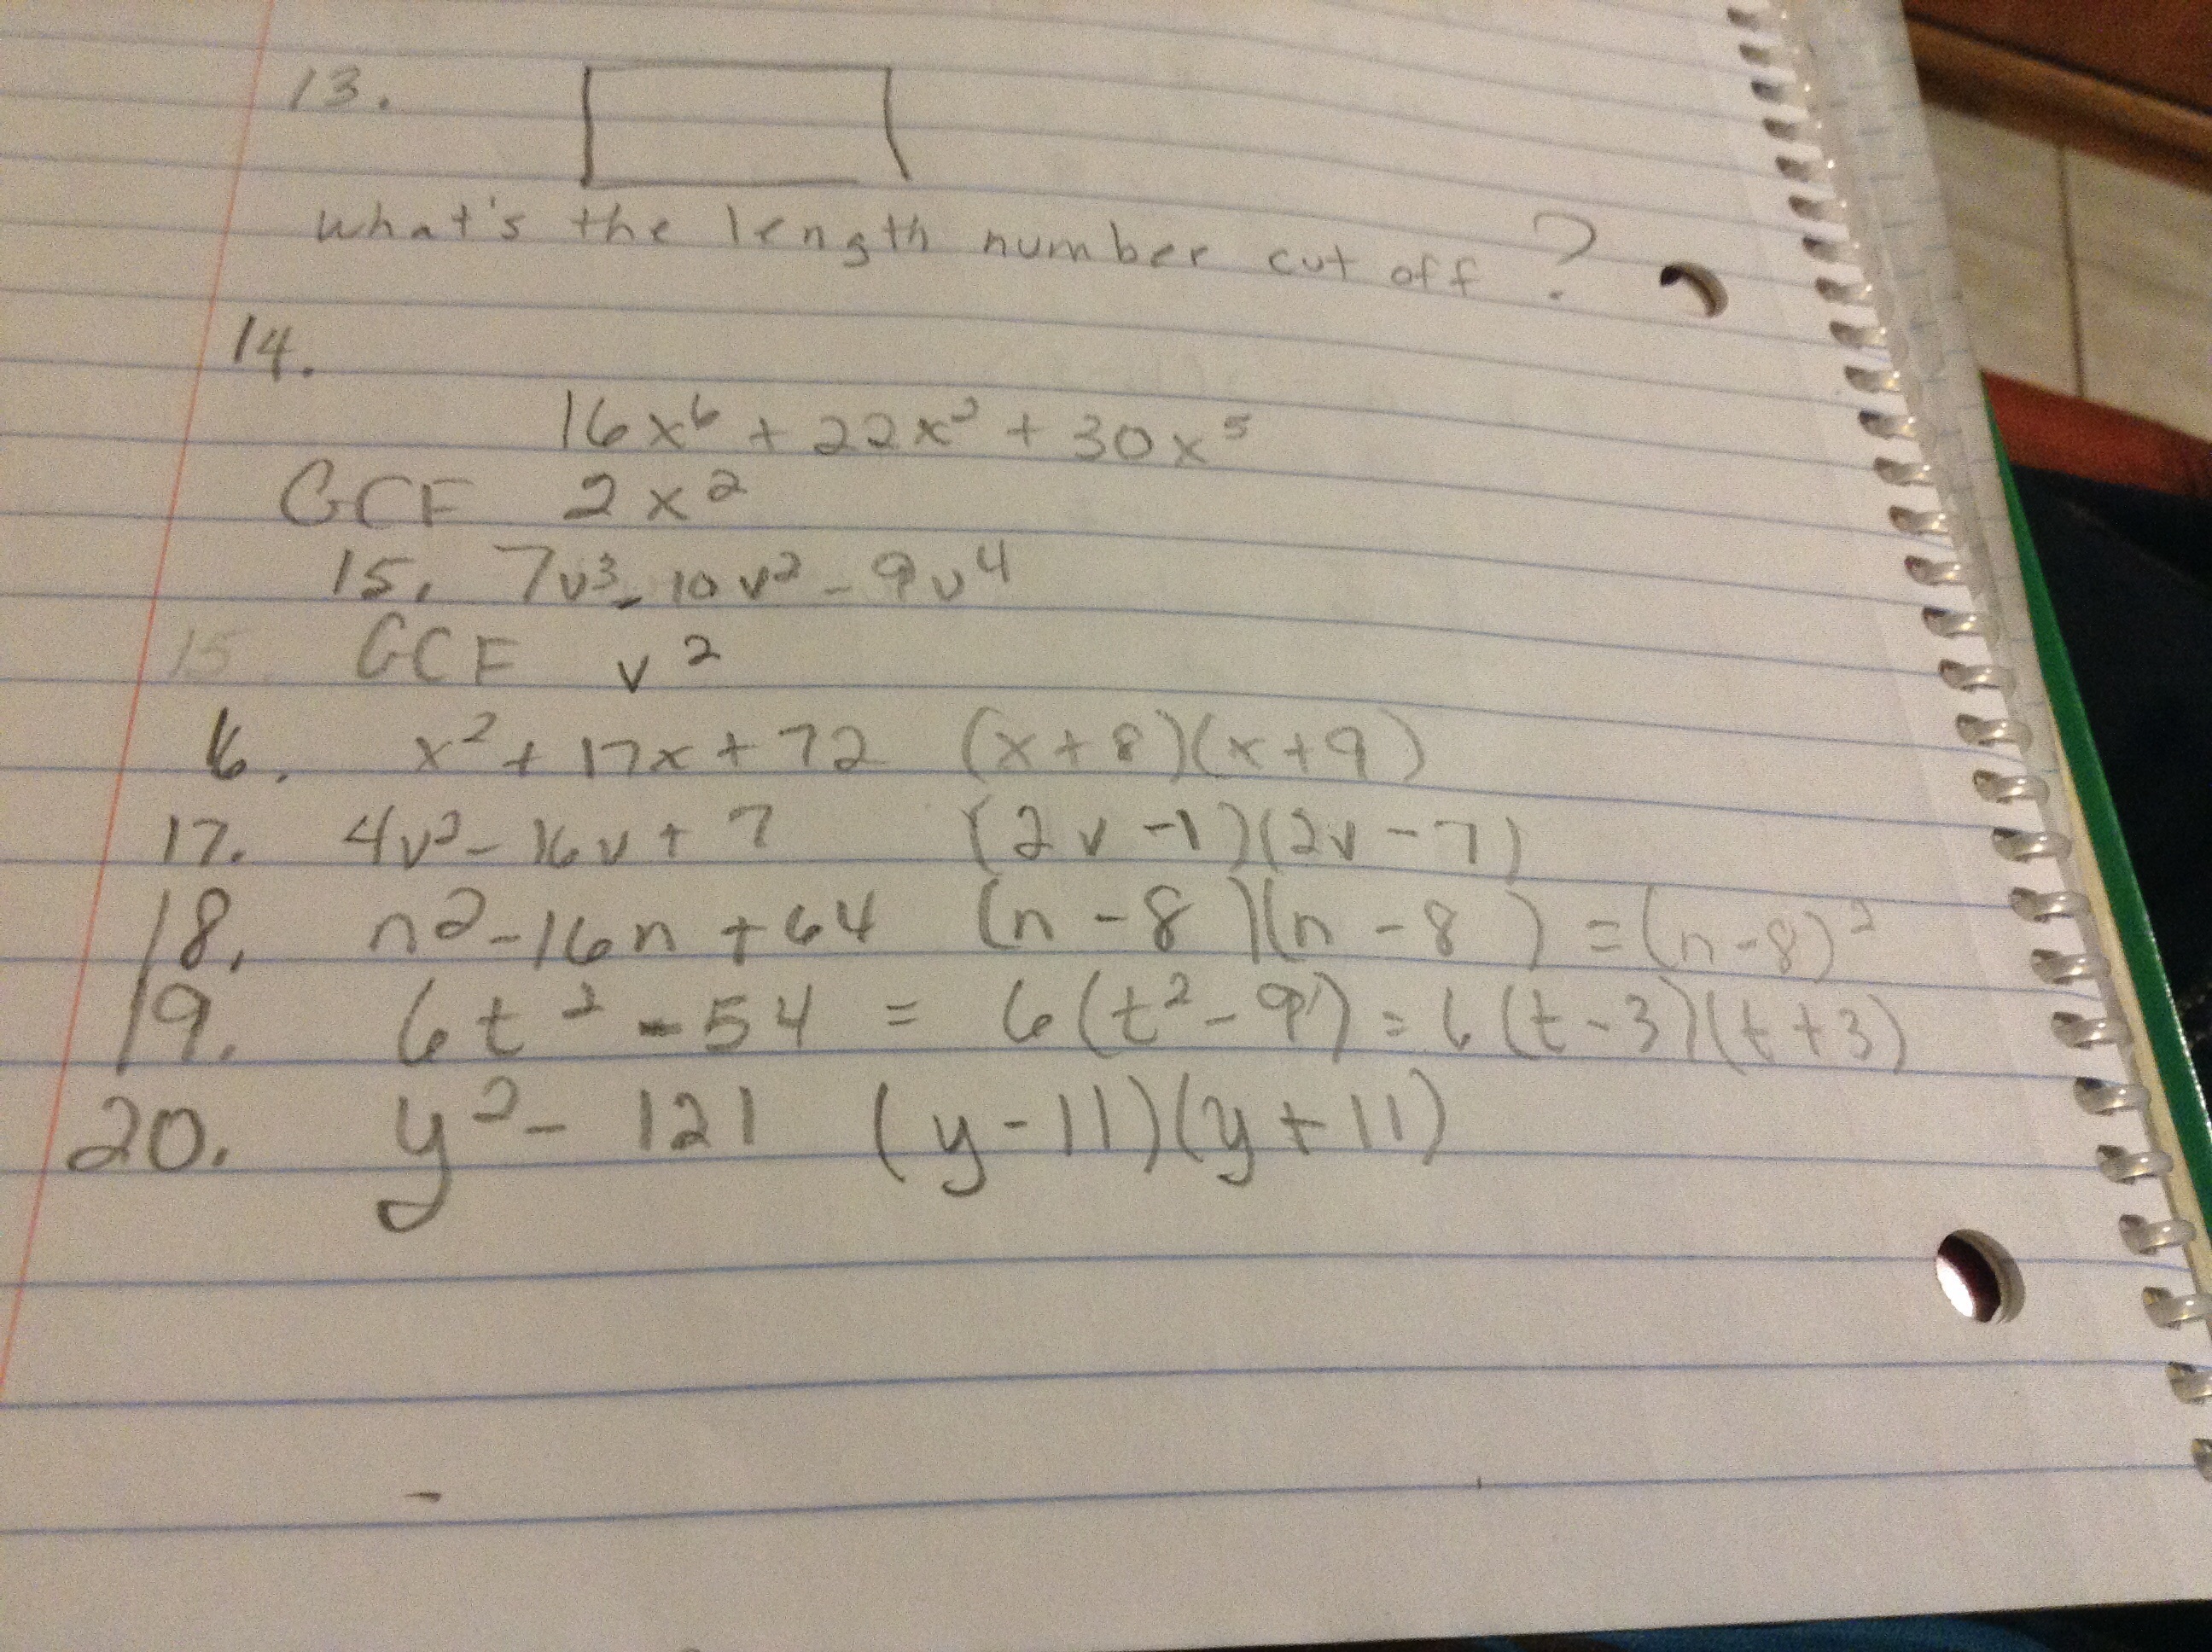 13.
what's the length number cut off ?
14.
16x⁶ + 22x² + 30x⁵
GCF 2x²
15. 7v³ - 10v² - 9v⁴
15. GCF v²
16. x² + 17x + 72 (x+8)(x+9)
17. 4v² - 16v + 7 (2v-1)(2v-7)
18. n² - 16n + 64 (n-8)(n-8) = (n-8)²
19. 6t² - 54 = 6(t²-9) = 6(t-3)(t+3)
20. y² - 121 (y-11)(y+11)